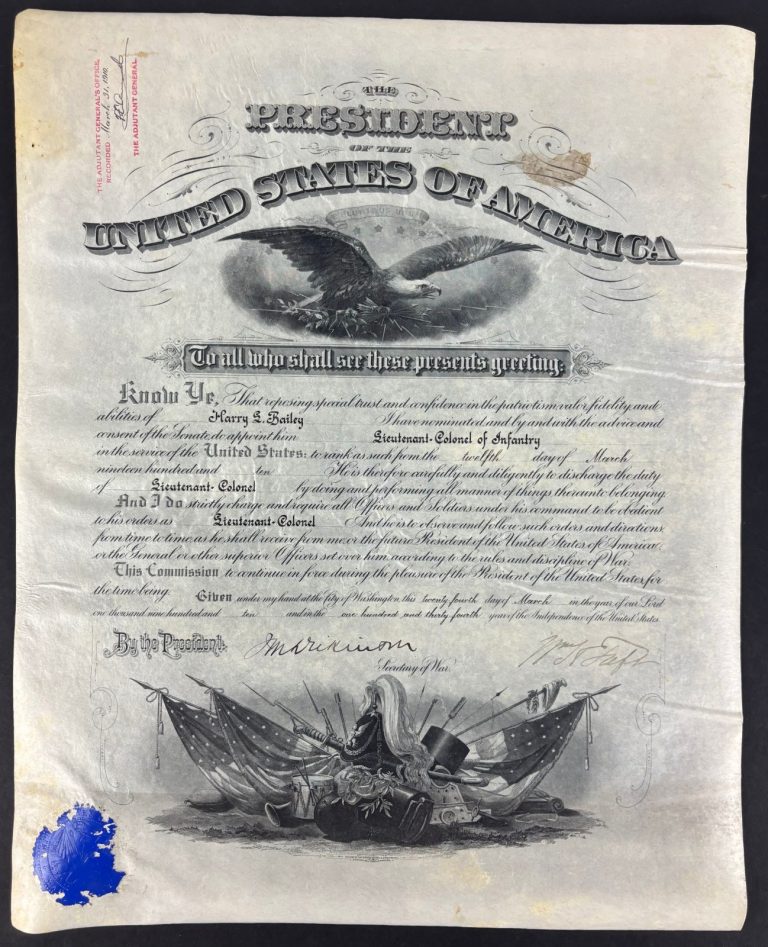 THE ADJUTANT GENERAL'S OFFICE,
RECORDED March 31, 1910
THE ADJUTANT GENERAL.
THE
PRESIDENT
OF THE
UNITED STATES OF AMERICA
To all who shall see these presents greeting:
Know Ye, That reposing special trust and confidence in the patriotism, valor, fidelity and
abilities of Harry L. Bailey I have nominated and by and with the advice and
consent of the Senate do appoint him Lieutenant-Colonel of Infantry
in the service of the United States: to rank as such from the twelfth day of March
nineteen hundred and ten He is therefore carefully and diligently to discharge the duty
of Lieutenant-Colonel by doing and performing all manner of things thereunto belonging.
And I do strictly charge and require all Officers and Soldiers under his command to be obedient
to his orders as Lieutenant-Colonel And he is to observe and follow such orders and directions
from time to time, as he shall receive from me, or the future President of the United States of America,
or the General or other superior Officers set over him, according to the rules and discipline of War.
This Commission to continue in force during the pleasure of the President of the United States for
the time being.
Given under my hand at the City of Washington, this twenty fourth day of March in the year of our Lord
one thousand nine hundred and ten and in the one hundred and thirty fourth year of the Independence of the United States.
By the President:
J M Dickinson
Wm H Taft
Secretary of War.